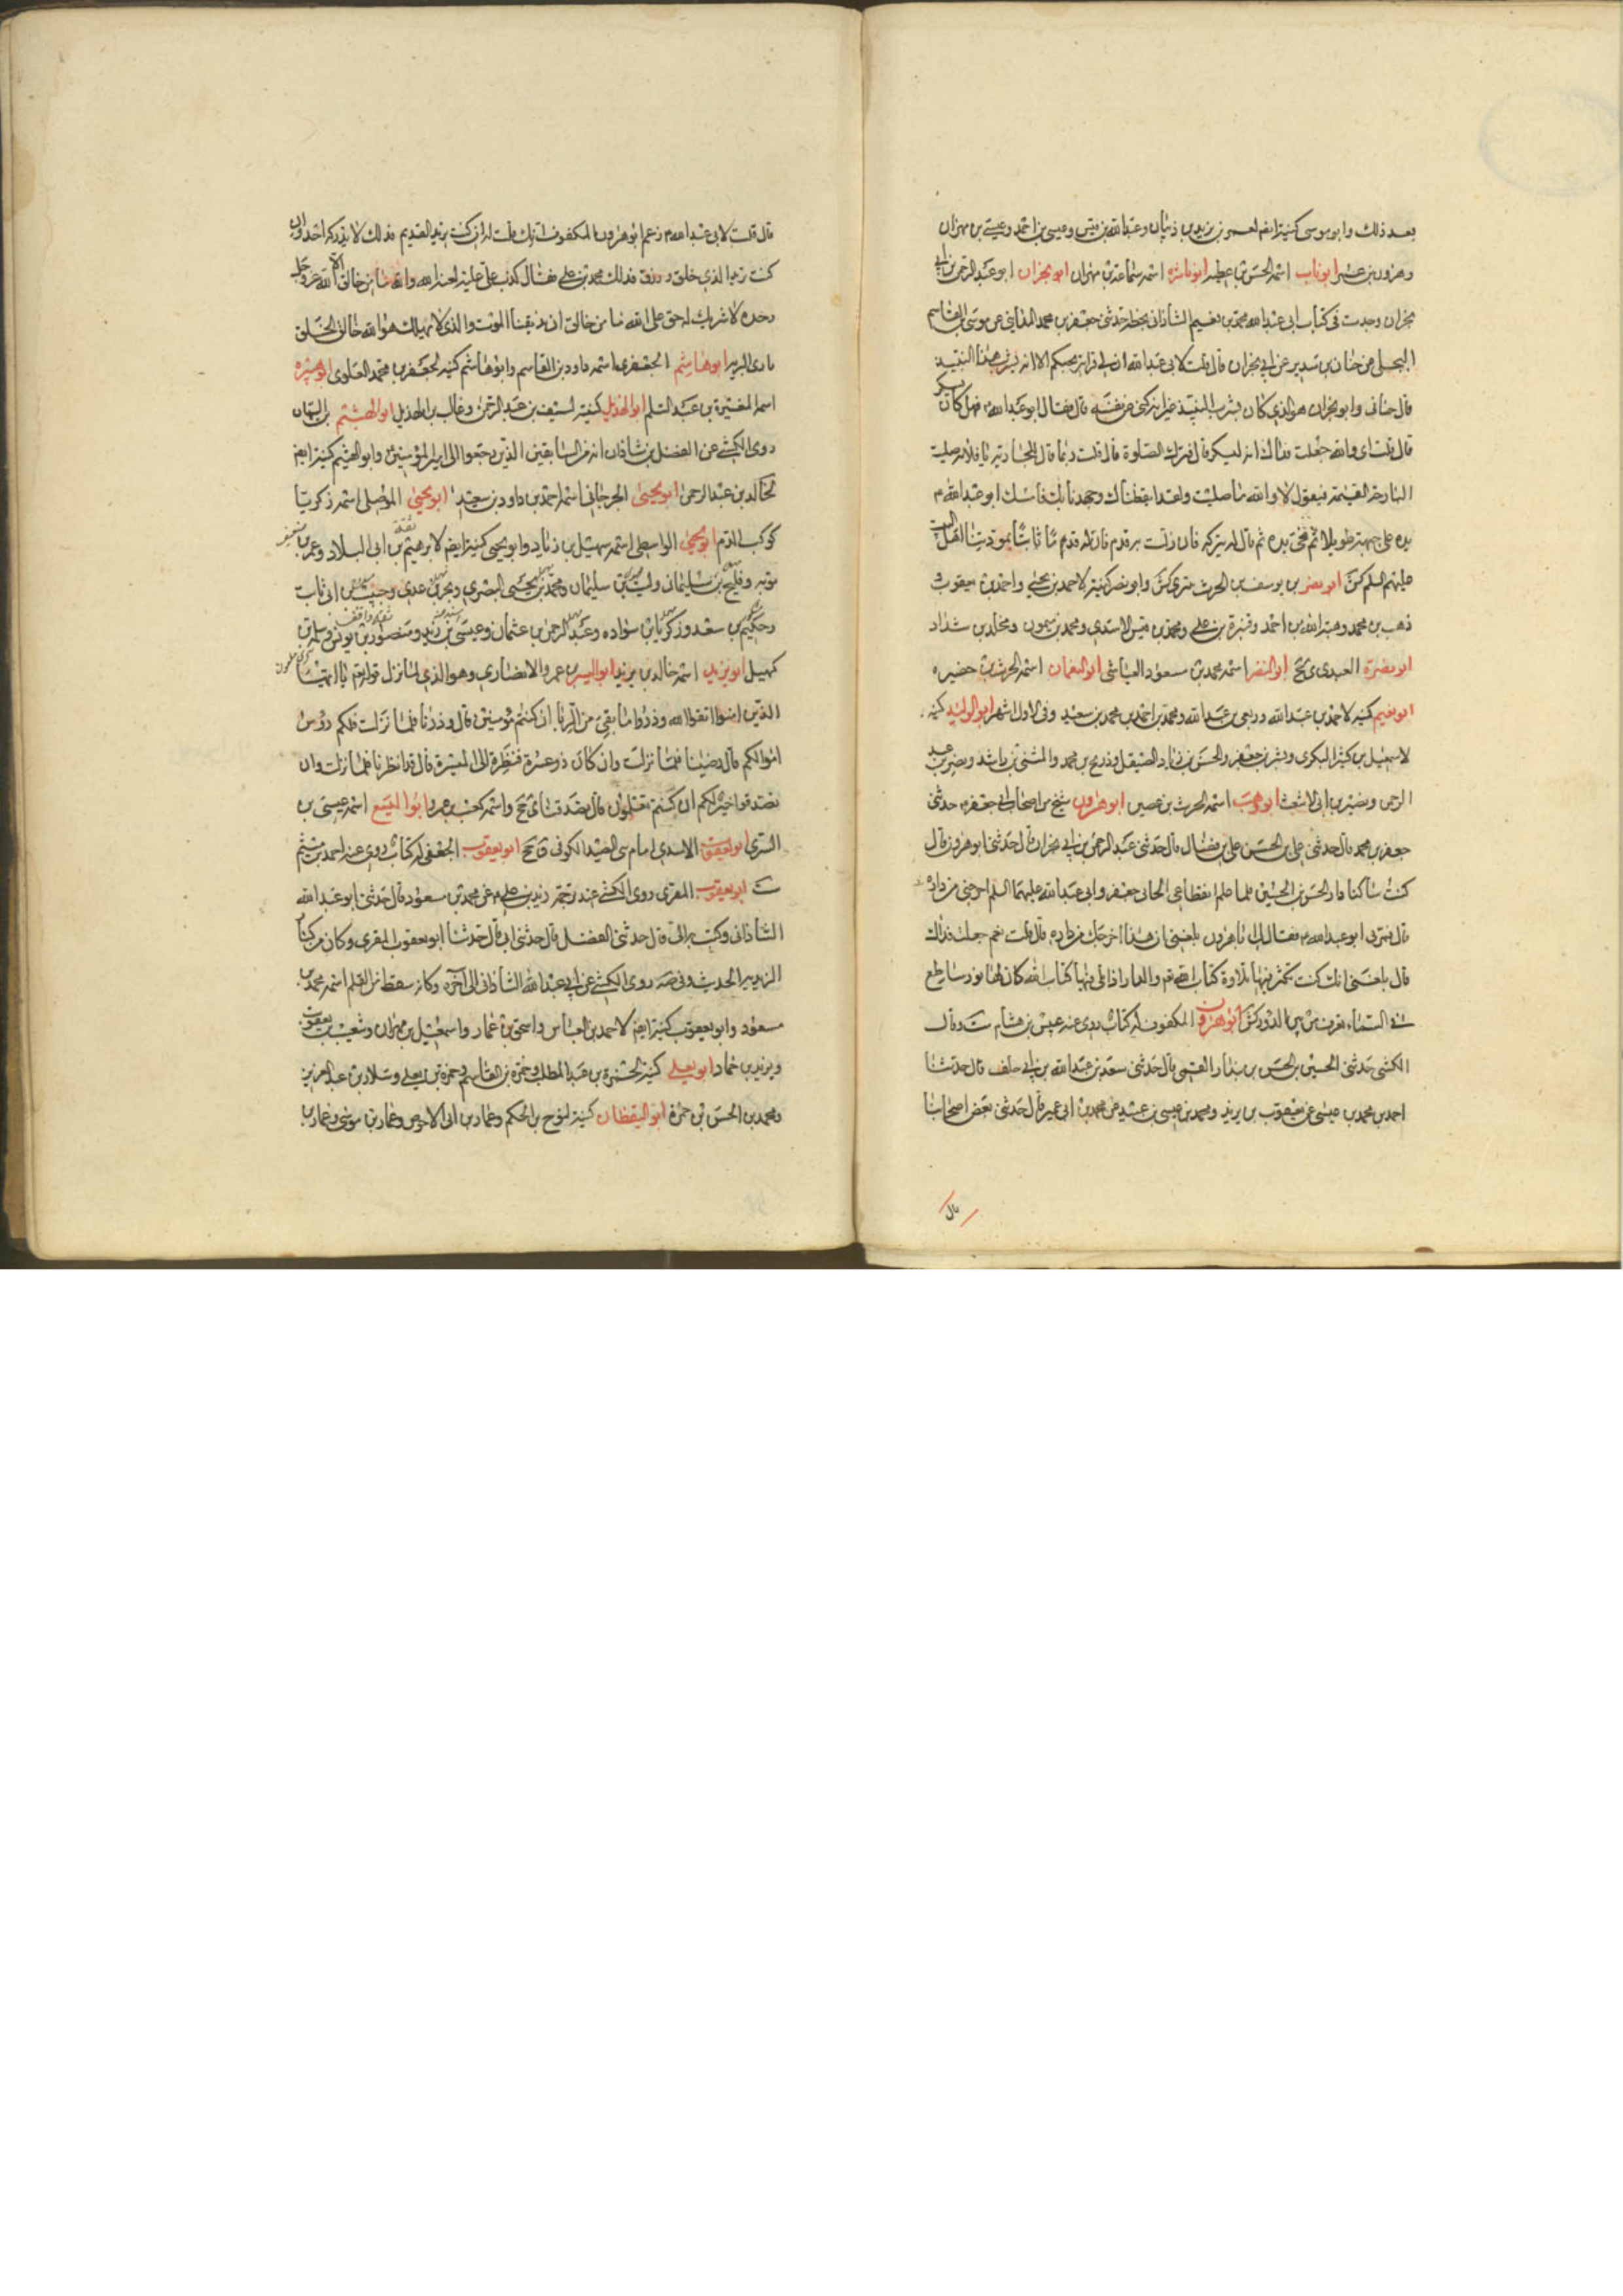 بعد ذلك وابو موسى كنية ايضا لعمر بن يزيد بن ذبيان وعبد الله بن قيس وعيسى بن احمد وعيسى بن مهران
وهرون بن عمير ابو ناب اسمه الحسن بن عطية ابو ناشره اسمه سماعة بن مهران ابو نجران ابو عبد الرحمن بن ابي
نجران وجدت في كتاب ابي عبد الله محمد بن نعيم الشاذاني بخطه حدثني جعفر بن محمد المدايني عن موسى بن القاسم
البجلي عن حنان بن سدير عن ابي نجران قال قلت لابي عبد الله ان لي قرابة يحبكم الا انه يشرب هذا النبيذ
قال حنان وابو نجران هو الذي كان يشرب النبيذ غير انه كنى عن نفسه قال فقال ابو عبد الله فهل كان يسكر
قال قلت اي والله جعلت فداك انه ليسكر قال فيترك الصلوة قال قلت ربما قال للجارية يا فلانه صليت
البارحة العتمة فتقول لا والله ما صليت ولقد ايقظناك وجهدنا بك فامسك ابو عبد الله م
يده على جبهته طويلا ثم نحى يده ثم قال له يتركه فان زلت به قدم فان له قدما ثابتا بمودتنا اهل البيت
عليهم السلم كش ابو نصر بن يوسف بن الحرث بتري كش وابو نصر كنية لاحمد بن يحيى واحمد بن يعقوب
ذهب بن محمد وهبة الله بن احمد وقنبرة بن علي ومحمد بن قيس الاسدي ومحمد بن ميمون ومخلد بن شداد
ابو نضرة العبدي ي ج ابو النضر اسمه محمد بن مسعود العياشي ابو النعمان اسمه الحرث بن حضيره
ابو نعيم كنية لاحمد بن عبد الله وربعي بن عبد الله ومحمد بن احمد بن محمد بن سعيد وفي الاول اشهر ابو الوليد كنية
لاسمعيل بن كثير البكري وبشر بن جعفر والحسن بن زياد الصيقل وذريح بن محمد والمثنى بن راشد ونصر بن عبد
الرحمن ونصير بن ابي الاشعث ابو وهب اسمه الحرث بن غصين ابو هرون شيخ من اصحاب ابي جعفر م حدثني
جعفر بن محمد قال حدثني علي بن الحسن بن علي بن فضال قال حدثني عبد الرحمن بن ابي نجران قال حدثني ابو هرون قال
كنت ساكنا دار الحسن بن الحسين فلما علم انقطاعي الى ابي جعفر وابي عبد الله عليهما السلم اخرجني من داره
قال فمر بي ابو عبد الله م فقال لي يا با هرون بلغني ان هذا اخرجك من داره قال قلت نعم جعلت فداك
قال بلغني انك كنت تكثر فيها تلاوة كتاب الله تع والدار اذا تلي فيها كتاب الله كان لها نور ساطع
في السماء تعرف من بين الدور كش ابو هرون المكفوف له كتاب روى عنه عبيس بن هشام ست وقال
الكشي حدثني الحسين بن الحسن بن بندار القمي قال حدثني سعد بن عبد الله بن ابي خلف قال حدثنا
احمد بن محمد بن عيسى عن يعقوب بن يزيد ومحمد بن عيسى بن عبيد عن محمد بن ابي عمير قال حدثني بعض اصحابنا
قال
قال قلت لابي عبد الله م زعم ابو هرون المكفوف انك قلت له ان كنت تريد القديم فذلك لا يدركه احد وان
كنت تريد الذي خلق ورزق فذلك محمد بن علي فقال كذب علي عليه لعنة الله والله ما من خالق الا الله عز وجل
وحده لا شريك له حق على الله ان يذيقنا الموت والذي لا يهلك هو الله خالق الخلق
بارئ البرية ابو هاشم الجعفري اسمه داود بن القاسم وابو هاشم كنية لجعفر بن محمد العلوي ابو هبيرة
اسمه المغيرة بن عبد السلم ابو الهذيل كنية لسيف بن عبد الرحمن وغالب بن الهذيل ابو الهيثم بن التيهان
روى الكشي عن الفضل بن شاذان انه من السابقين الذين رجعوا الى امير المؤمنين وابو الهيثم كنية ايضا
لخالد بن عبد الرحمن ابو يحيى الجرجاني اسمه احمد بن داود بن سعيد ابو يحيى الموصلي اسمه زكريا
كوكب الدم ابو يحيى الواسطي اسمه سهيل بن زياد وابو يحيى كنية ايضا لابرهيم بن ابي البلاد وعمر بن
توبه وفليح بن سليمان وليث بن سليمان ومحمد بن يحيى البصري وبحر بن عدي وحبيب بن ابي ثابت
وحكيم بن سعد وزكريا بن سواده وعبد الرحمن بن عثمان وعيسى بن زيد ومنصور بن يونس وسلمه بن
كهيل ابو يزيد اسمه خالد بن يزيد ابو اليسر بن عمرو الانصاري وهو الذي لما نزل قوله تع يا ايها
الذين امنوا اتقوا الله وذروا ما بقي من الربا ان كنتم مؤمنين قال وذرنا فلما نزلت فلكم رؤس
اموالكم قال رضينا فلما نزلت وان كان ذو عسرة فنظرة الى الميسرة قال قد انظرنا فلما نزلت وان
تصدقوا خير لكم ان كنتم تعلمون قال تصدقنا ي ج واسمه كعب بن عمرو ابو اليسع اسمه عيسى بن
السري ابو يعقوب الاسدي امام بني الصيد الكوفي ق ج ابو يعقوب الجعفي له كتاب روى عنه احمد بن ميثم
ست ابو يعقوب المقري روى الكشي عند ترجمة زيد بن علي م عن محمد بن مسعود قال حدثني ابو عبد الله
الشاذاني وكتب به الي قال حدثني الفضل قال حدثني ابي قال حدثنا ابو يعقوب المقري وكان من كبار
الزيدية الحديث وفي صه روى الكشي عن ابي عبد الله الشاذاني الى اخره وكانه سقط من القلم اسم محمد بن
مسعود وابو يعقوب كنية ايضا لاحمد بن العباس واسحق بن عمار واسمعيل بن مهران وشعيب بن يعقوب
ويزيد بن حماد ابو يعلى كنية لحمزة بن عبد المطلب وحمزة بن القاسم وحمزة بن يعلى وسلار بن عبد العزيز
ومحمد بن الحسن بن حمزة ابو اليقظان كنية لنوح بن الحكم وعمار بن ابي الاحوص وعمار بن موسى وعمار بن